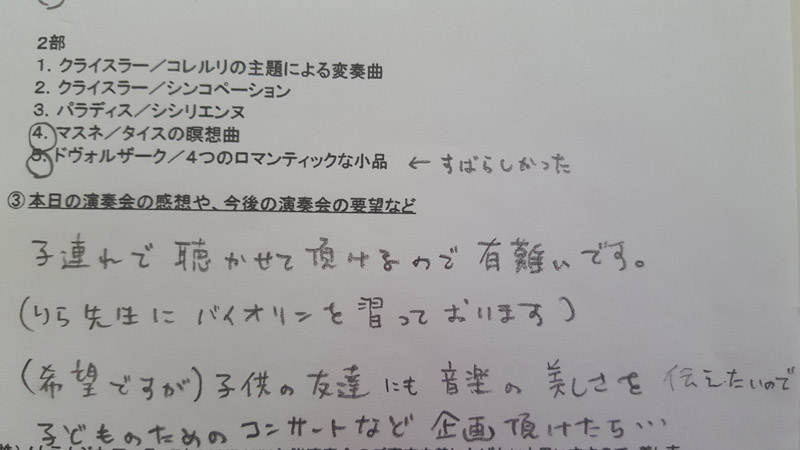 2部
1. クライスラー／コレルリの主題による変奏曲
2. クライスラー／シンコペーション
3. パラディス／シシリエンヌ
4. マスネ／タイスの瞑想曲
5. ドヴォルザーク／4つのロマンティックな小品 ← すばらしかった
③本日の演奏会の感想や、今後の演奏会の要望など
子連れで 聴かせて 頂けるので 有難いです。
(りら先生に バイオリンを 習って おります)
(希望ですが) 子供の 友達 にも 音楽の 美しさを 伝えたいので
子どものための コンサートなど 企画 頂けたら…